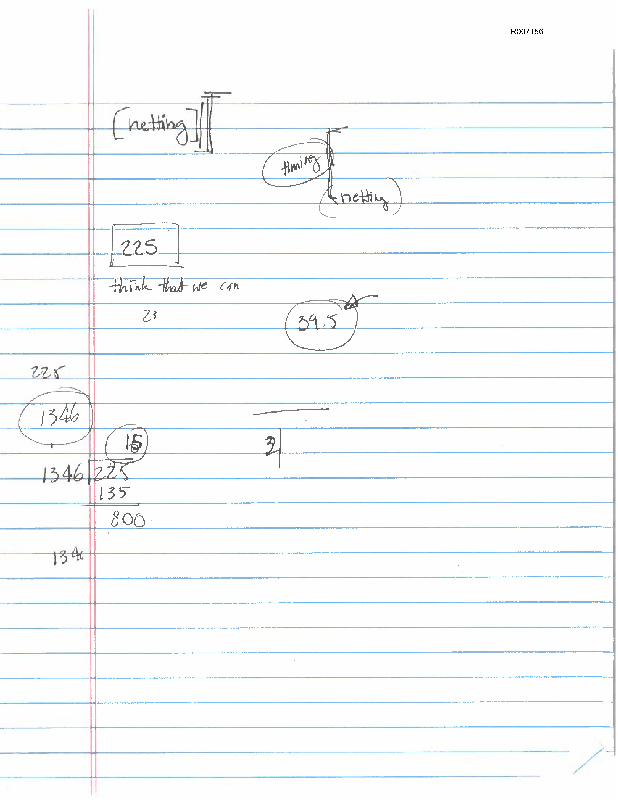 R007156
[netting]
timing
netting
225
think that we can
23
39.5
225
1346
15
2
1346 225
135
800
134